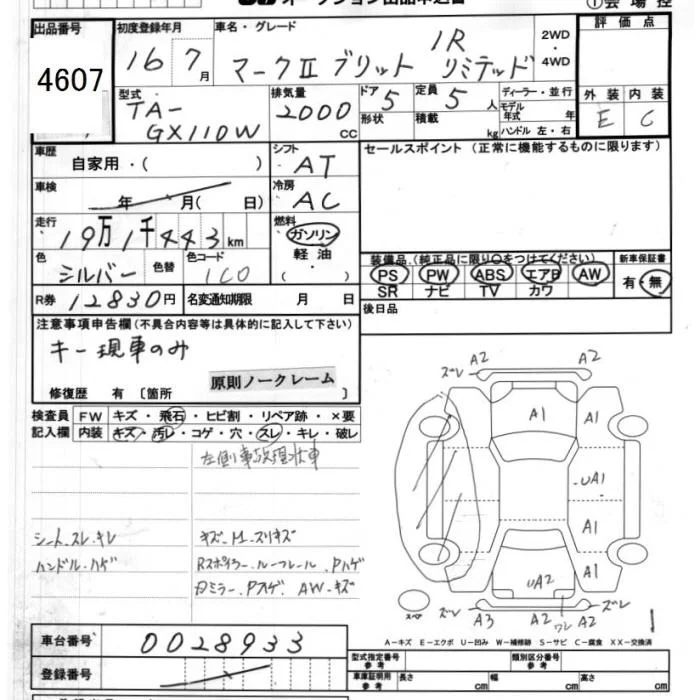 オークション出品申込書
①会場控
出品番号
4607
初度登録年月
16 7月
車名・グレード
1R
マークⅡ ブリット リミテッド
2WD・4WD
評価点
外装 内装
E C
型式
TA-
GX110W
排気量
2000 cc
ドア 5
形状
定員 5人
積載 kg
ディーラー・並行
モデル年式 年
ハンドル 左・右
車歴
自家用・( )
シフト
AT
セールスポイント (正常に機能するものに限ります)
車検
年 月( 日)
冷房
AC
走行
19万1千443km
燃料
ガソリン
軽油
( ・ )
色
シルバー
色替
色コード
1C0
装備品(純正品に限り○をつけてください)
PS PW ABS エアB AW
SR ナビ TV カワ
新車保証書
有・無
R券 12830円
名変通知期限 月 日
後日品
注意事項申告欄(不具合内容等は具体的に記入して下さい)
キー現車のみ
原則ノークレーム
修復歴 有 〔箇所 〕
検査員記入欄
FW キズ・飛石・ヒビ割・リペア跡・×要
内装 キズ・汚レ・コゲ・穴・スレ・キレ・破レ
左側事故現状車
シート スレ キレ
ハンドル ハゲ
キズ・凹・スリキズ
Rスポイラー・ルーフレール・Pハゲ
Dミラー・Pハゲ AW・キズ
ズレ A2 A2 ズレ
A1 A1
UA1
A1
A1
UA2
スペア
ズレ A3 A2 ワレ A2 ズレ
A-キズ E-エクボ U-凹み W-補修跡 S-サビ C-腐食 XX-交換済
車台番号
0028933
登録番号
型式指定番号 参考
類別区分番号 参考
車庫証明用 参考
長さ cm
幅 cm
高さ cm